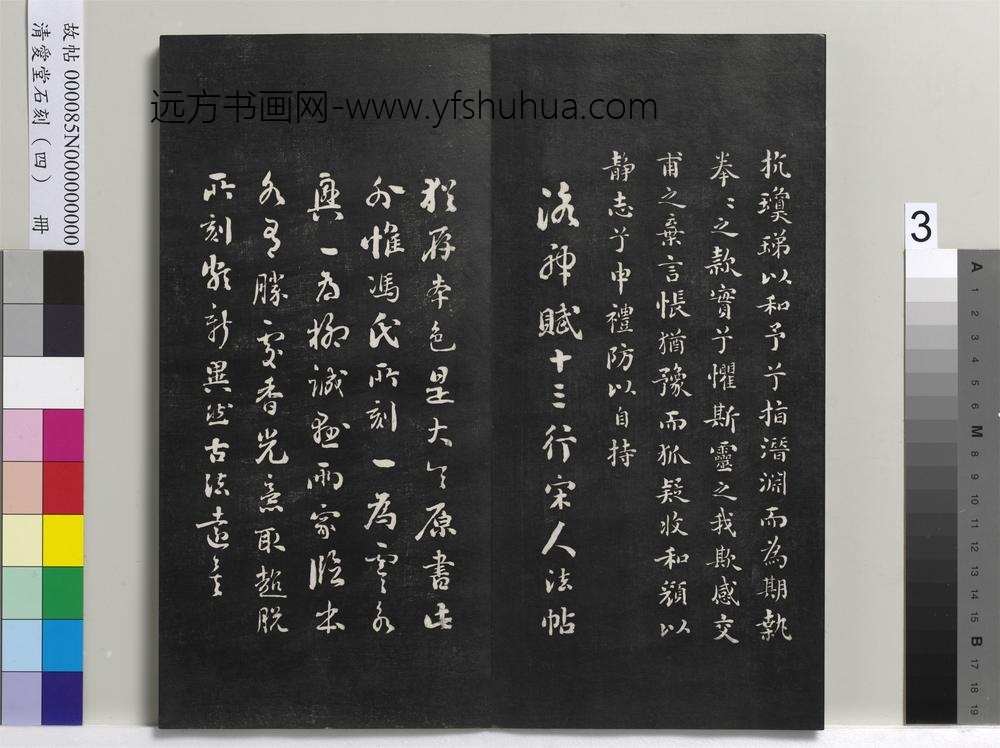 抗瓊珶以和予兮指潛淵而為期執
拳〻之款實兮懼斯靈之我欺感交
甫之棄言悵猶豫而狐疑收和顏以
靜志兮申禮防以自持
洛神賦十三行宋人法帖
猶存本色是大令原書此
外惟馮氏所刻一為
一為柳誠懸兩家臨本
各有勝處香光意取超脫
所刻頗新異然古法遠矣
远方书画网-www.yfshuhua.com
故帖 000085N000000000
清愛堂石刻（四） 冊
3
A 1 2 3 4 5 6 M 8 9 10 11 12 13 14 15 B 17 18 19